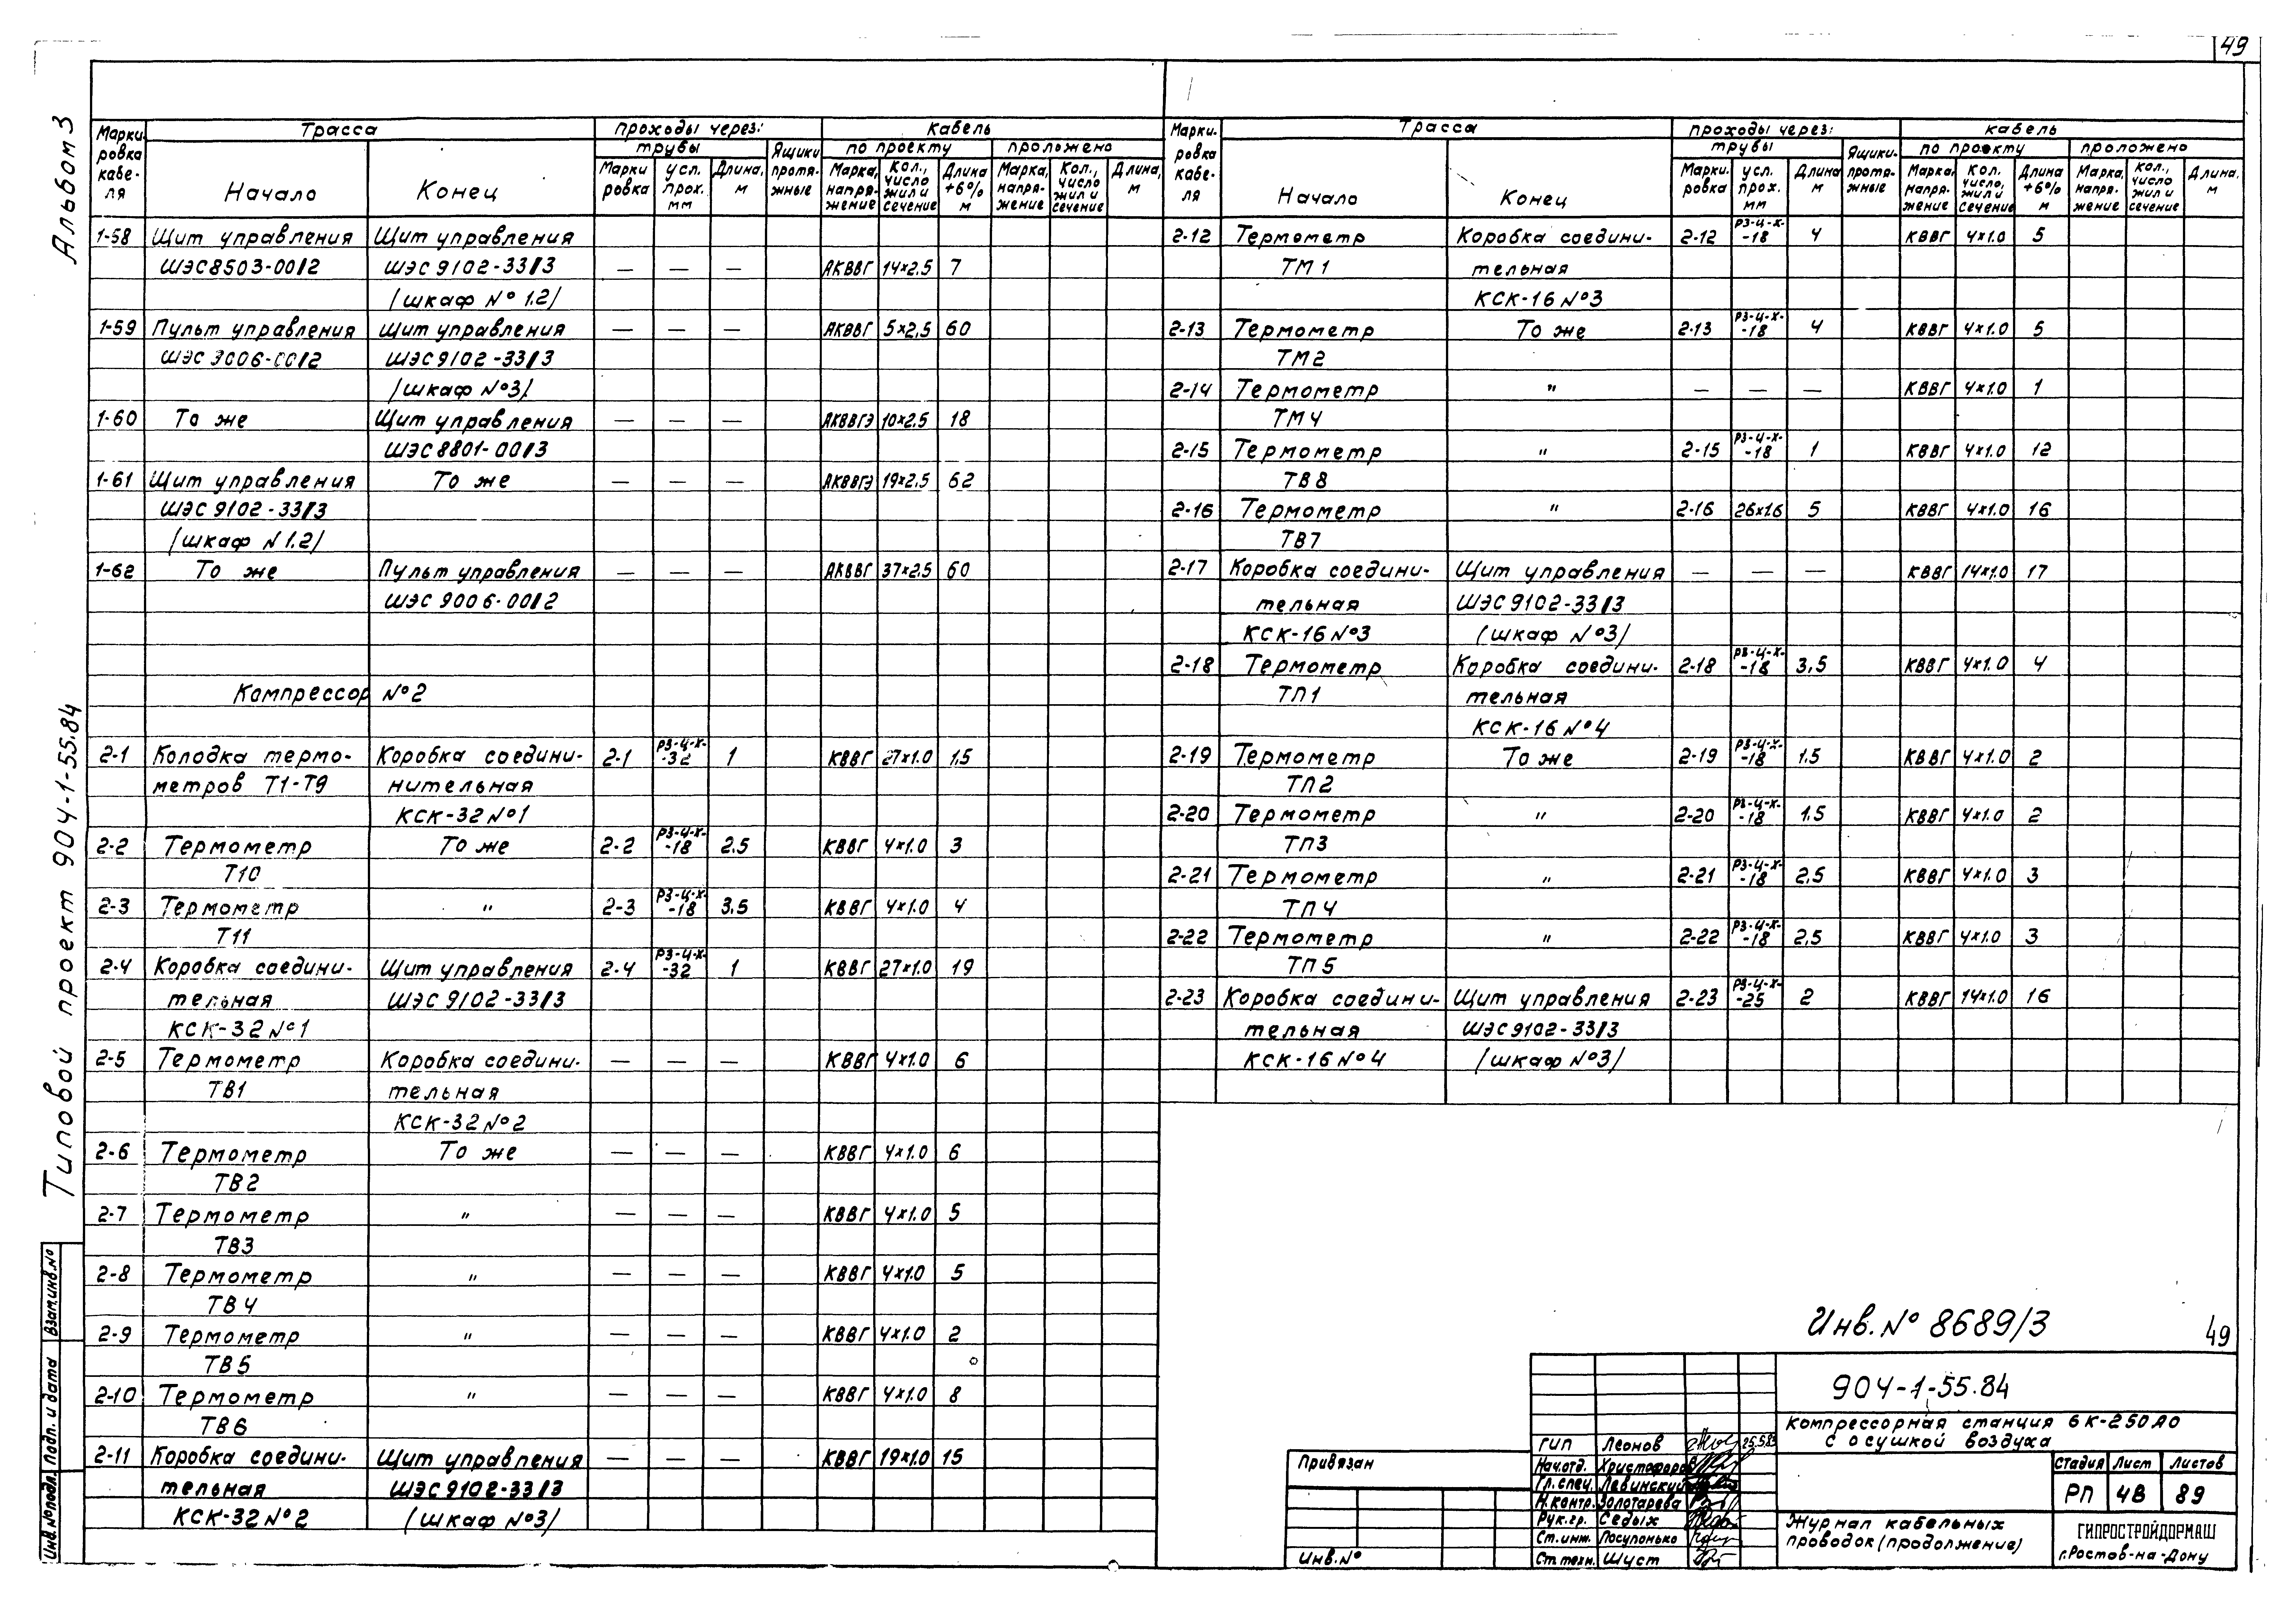 49
Альбом 3
Типовой проект 904-1-55.84
Взам.инв.№
Подп. и дата
Инв.№подл.
Марки-ровка кабе-ля | Трасса | проходы через: | Кабель
трубы | Ящики протя-жные | по проекту | проложено
Начало | Конец | Марки ровка | усл. прох. мм | Длина, м | Марка, напря-жение | Кол., число жил и сечение | Длина +6% м | Марка, напря-жение | Кол., число жил и сечение | Длина, м
1-58 Щит управления Щит управления
ШЭС8503-00/2 ШЭС9102-33/3 — — — АКВВГ 14×2.5 7
/шкаф № 1.2/
1-59 Пульт управления Щит управления — — — АКВВГ 5×2,5 60
ШЭС 9006-00/2 ШЭС9102-33/3
/шкаф №3/
1-60 То же Щит управления — — — АКВВГЭ 10×2.5 18
ШЭС8801-00/3
1-61 Щит управления То же — — — АКВВГЭ 19×2.5 62
ШЭС 9102-33/3
/шкаф N1.2/
1-62 То же Пульт управления — — — АКВВГ 37×2.5 60
ШЭС 9006-00/2
Компрессор №2
2-1 Колодка термо- Коробка соедини- 2-1 РЗ-Ц-Х--32 1 КВВГ 27×1.0 1,5
метров Т1-Т9 нительная
КСК-32 №1
2-2 Термометр То же 2-2 РЗ-Ц-Х--18 2.5 КВВГ 4×1.0 3
Т10
2-3 Термометр " 2-3 РЗ-Ц-Х--18 3,5 КВВГ 4×1.0 4
Т11
2-4 Коробка соедини- Щит управления 2-4 РЗ-Ц-Х--32 1 КВВГ 27×1.0 19
тельная ШЭС 9102-33/3
КСК-32 №1
2-5 Термометр Коробка соедини- — — КВВГ 4×1.0 6
ТВ1 тельная
КСК-32 №2
2-6 Термометр То же — — — КВВГ 4×1.0 6
ТВ2
2-7 Термометр " — — — КВВГ 4×1.0 5
ТВ3
2-8 Термометр " — — — КВВГ 4×1.0 5
ТВ4
2-9 Термометр " — — — КВВГ 4×1.0 2
ТВ5
2-10 Термометр " — — — КВВГ 4×1.0 8
ТВ6
2-11 Коробка соедини- Щит управления — — — КВВГ 19×1.0 15
тельная ШЭС9102-33/3
КСК-32 №2 /шкаф №3/
Марки-ровка кабе-ля | Трасса | проходы через: | кабель
трубы | Ящики-протя-жные | по проекту | проложено
Начало | Конец | Марки-ровка | усл. прох. мм | Длина м | Марка, напря-жение | Кол. число, жил и сечение | Длина +6% м | Марка, напря-жение | Кол., число жил и сечение | Длина, м
2-12 Термометр Коробка соедини- 2-12 РЗ-Ц-Х--18 4 КВВГ 4×1.0 5
ТМ1 тельная
КСК-16 №3
2-13 Термометр То же 2-13 РЗ-Ц-Х--18 4 КВВГ 4×1.0 5
ТМ2
2-14 Термометр " — — — КВВГ 4×1.0 1
ТМ4
2-15 Термометр " 2-15 РЗ-Ц-Х--18 1 КВВГ 4×1.0 12
ТВ8
2-16 Термометр " 2-16 26×1.6 5 КВВГ 4×1.0 16
ТВ7
2-17 Коробка соедини- Щит управления — — — КВВГ 14×1.0 17
тельная ШЭС9102-33/3
КСК-16 №3 /шкаф №3/
2-18 Термометр Коробка соедини- 2-18 РЗ-Ц-Х--18 3,5 КВВГ 4×1.0 4
ТП1 тельная
КСК-16 №4
2-19 Термометр То же 2-19 РЗ-Ц-Х--18 1.5 КВВГ 4×1.0 2
ТП2
2-20 Термометр " 2-20 РЗ-Ц-Х--18 1.5 КВВГ 4×1.0 2
ТП3
2-21 Термометр " 2-21 РЗ-Ц-Х--18 2,5 КВВГ 4×1.0 3
ТП4
2-22 Термометр " 2-22 РЗ-Ц-Х--18 2,5 КВВГ 4×1.0 3
ТП5
2-23 Коробка соедини- Щит управления 2-23 РЗ-Ц-Х--25 2 КВВГ 14×1.0 16
тельная ШЭС9102-33/3
КСК-16 №4 /шкаф №3/
Инв.№ 8689/3
49
904-1-55.84
Компрессорная станция 6К-250АО
с осушкой воздуха
ГИП Леонов 25.5.83
Нач.отд. Христофоров
Гл.спец. Левинский
Н.контр. Золотарева
Рук.гр. Седых
Ст.инж. Посупонько
Ст.техн. Шуст
Привязан
Инв.№
Стадия Лист Листов
РП 48 89
Журнал кабельных
проводок (продолжение)
ГИПРОСТРОЙДОРМАШ
г.Ростов-на-Дону